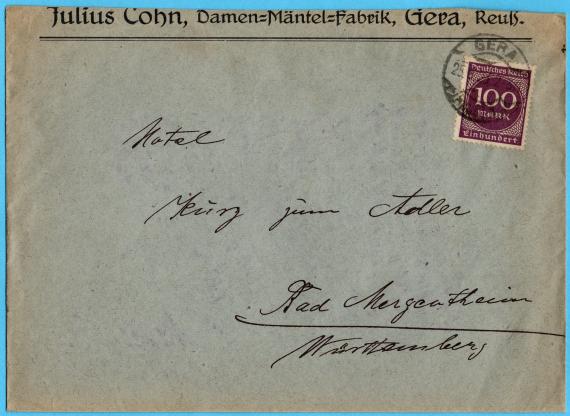 Julius Cohn, Damen=Mäntel=Fabrik, Gera, Reuß.
GERA
25
Deutsches Reich
100
Mark
Einhundert
Hotel
Kurz zum Adler
Bad Mergentheim
Württemberg